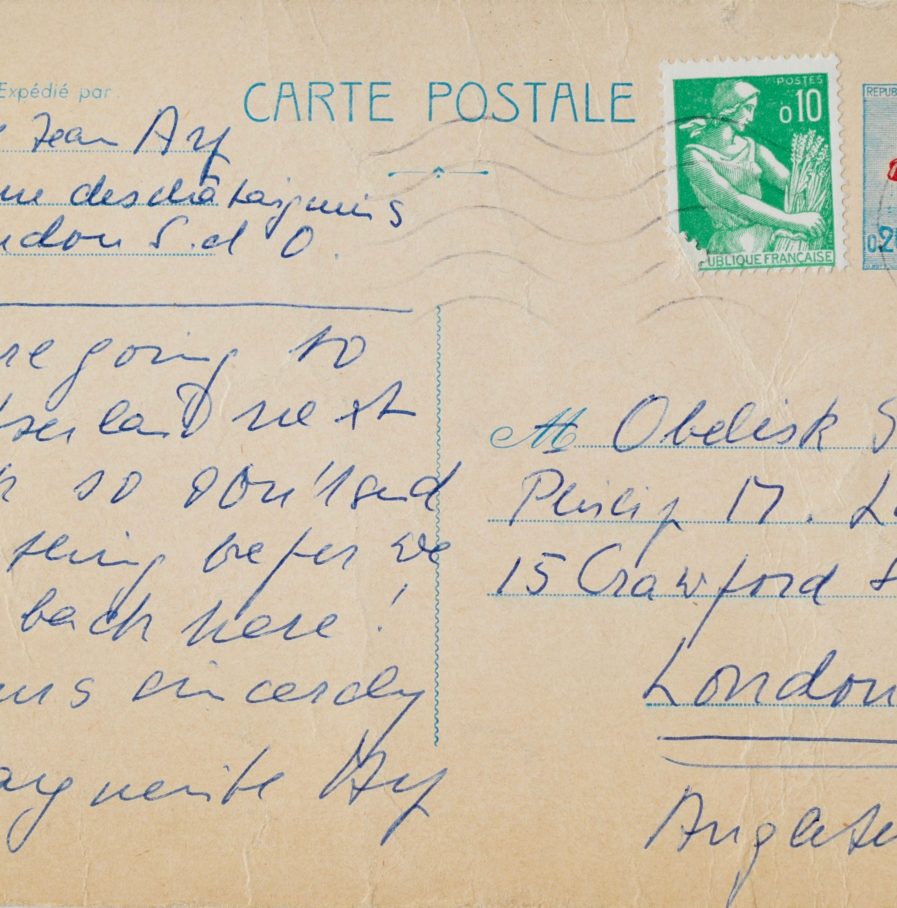 Expédié par
CARTE POSTALE
POSTES
0,10
RÉPUBLIQUE FRANÇAISE
REPUB
0,2
Jean Arp
rue des châtaigniers
udon S. et O.
re going to
tserland next
k so don't send
thing befor we
back here!
urs sincerely
arguerite Arp
M Obelisk
Philip M.
15 Crawford
London
Anglete